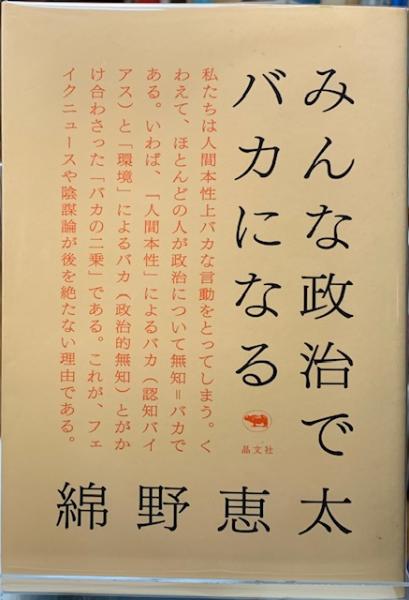 みんな政治で
バカになる
私たちは人間本性上バカな言動をとってしまう。く
わえて、ほとんどの人が政治について無知=バカで
ある。いわば、「人間本性」によるバカ（認知バイ
アス）と「環境」によるバカ（政治的無知）とがか
け合わさった「バカの二乗」である。これが、フェ
イクニュースや陰謀論が後を絶たない理由である。
晶文社
綿野恵太